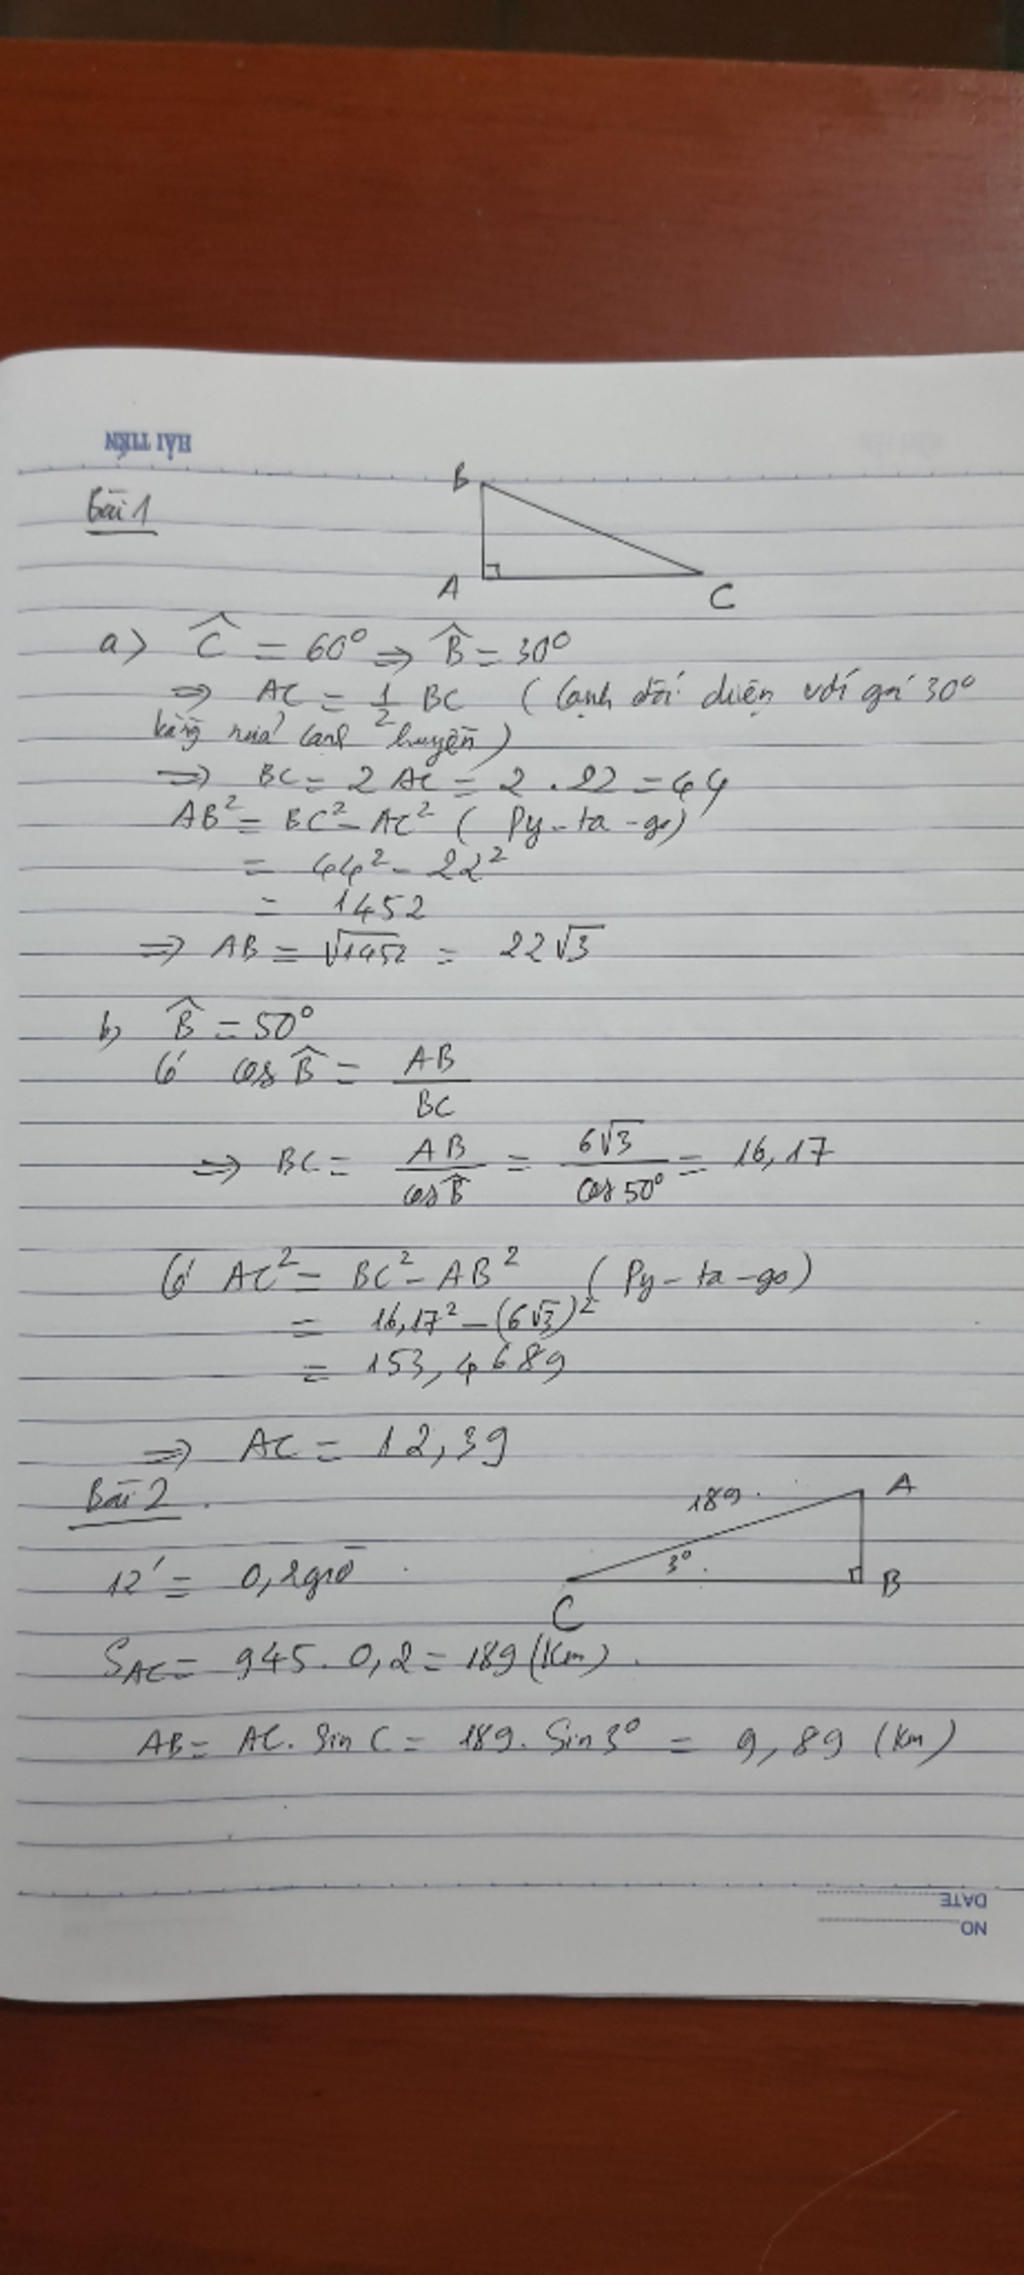 HẢI TIẾN
Bài 1
B
A
C
a) Ĉ = 60° ⇒ B̂ = 30°
⇒ AC = 1/2 BC ( Cạnh đối diện với góc 30°
bằng nửa cạnh huyền )
⇒ BC = 2 AC = 2 . 22 = 44
AB² = BC² - AC² ( Py - ta - go)
= 44² - 22²
= 1452
⇒ AB = √1452 = 22√3
b) B̂ = 50°
Có cos B̂ = AB/BC
⇒ BC = AB/cos B̂ = 6√3/cos 50° = 16,17
Có AC² = BC² - AB² ( Py - ta - go)
= 16,17² - (6√3)²
= 153,4689
⇒ AC = 12,39
Bài 2
189
A
3°
C
B
12' = 0,2 giờ
S_AC = 945 . 0,2 = 189 (Km)
AB = AC . Sin C = 189 . Sin 3° = 9,89 (Km)
DATE
NO